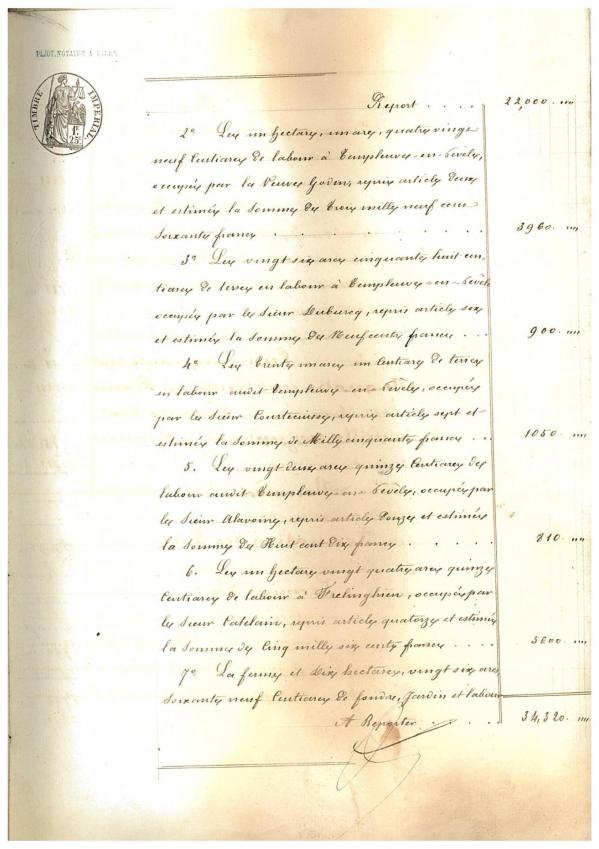 PAJOT, NOTAIRE A LILLE
TIMBRE IMPERIAL
1F
25c
Report . . . . 22,000 "„
2° Les un hectare, un are, quatre vingt
neuf Centiares de labour à Templeuve-en-Pévèle,
occupés par la Veuve Godin, repris article Deux
et estimés la Somme de Trois mille neuf cent
soixante francs . . . . . . 3960. "„
3° Les vingt six ares cinquante huit cen-
tiares de terre en labour à Templeuve-en-Pévèle
occupés par le Sieur Dubureq, repris article six
et estimés la Somme de Neuf cents francs . . . 900. "„
4° Les Trente un ares un Centiare de terre
en labour audit Templeuve-en-Pévèle, occupés
par le Sieur Courtecuisse, repris article sept et
estimés la Somme de Mille cinquante francs . . 1050. "„
5. Les vingt deux ares quinze Centiares de
labour audit Templeuve-en-Pévèle, occupés par
le Sieur Alavoine, repris article Douze et estimés
la Somme de Huit cent Dix francs . . . . 810. "„
6. Les un hectare vingt quatre ares quinze
Centiares de labour à Frelinghien, occupés par
le Sieur Catelain, repris article quatorze et estimés
la Somme de Cinq mille six cents francs . . . . 5600. "„
7° La ferme et Dix hectares, vingt six ares
soixante neuf Centiares de fonds, Jardin et labour
A Reporter . . . . 34,320. "„